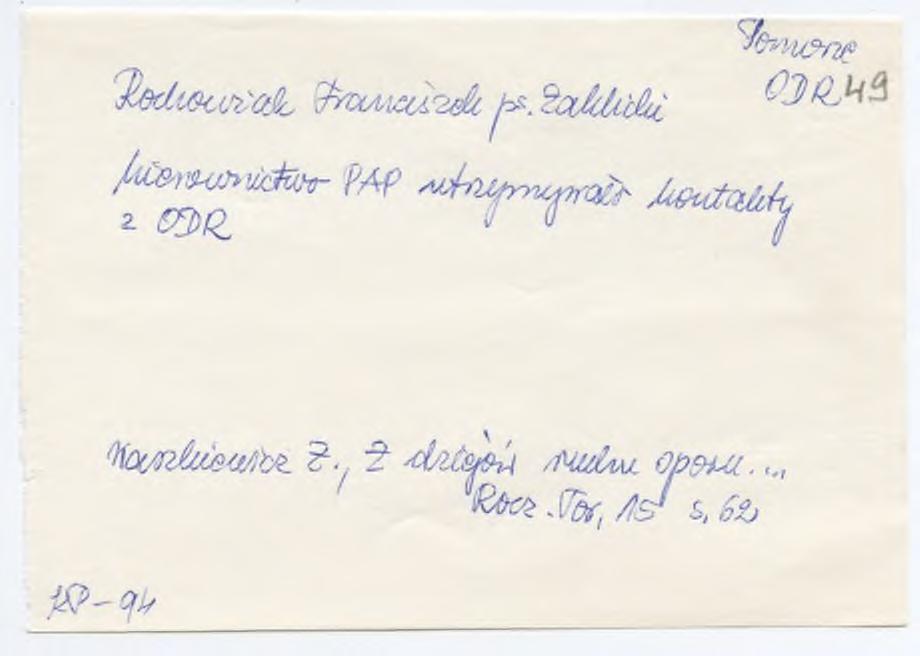 Pomorze
ODR 49
Rochowiak Franciszek ps. Zaklicki
kierownictwo PAP utrzymywało kontakty
z ODR
Waszkiewicz Z., Z dziejów ruchu oporu....
Rocz. Tor, 15 s, 62
KP-94